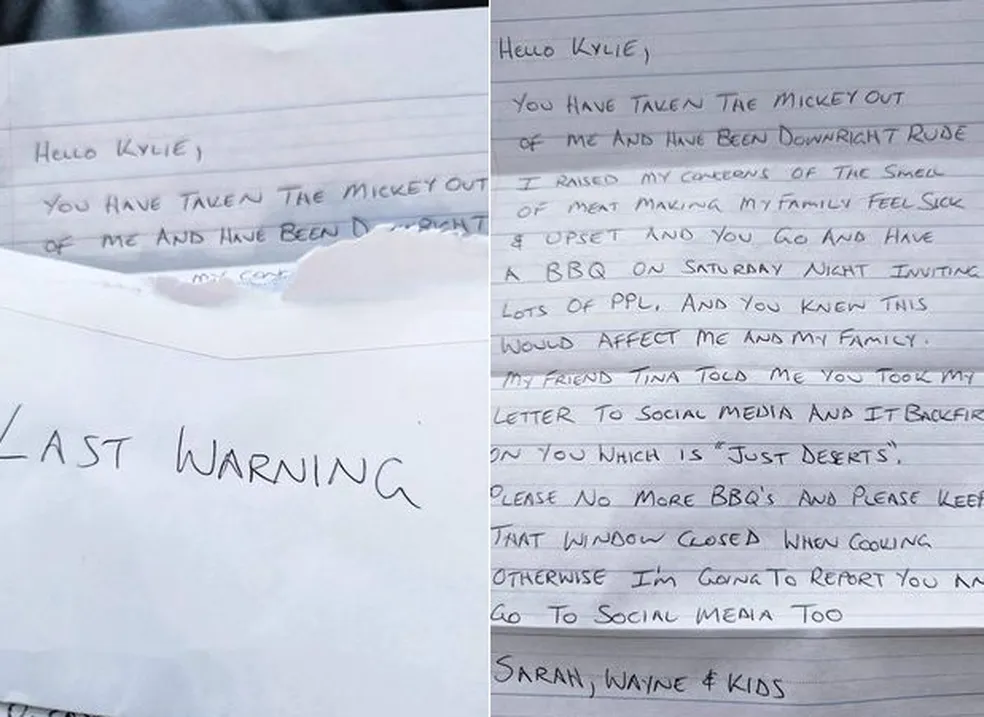 Hello KYLIE,
YOU HAVE TAKEN THE MICKEY OUT
OF ME AND HAVE BEEN DOWNRIGHT
my con
LAST WARNING
Hello KYLIE,
YOU HAVE TAKEN THE MICKEY OUT
OF ME AND HAVE BEEN DOWNRIGHT RUDE
I RAISED MY CONCERNS OF THE SMELL
OF MEAT MAKING MY FAMILY FEEL SICK
& UPSET AND YOU GO AND HAVE
A BBQ ON SATURDAY NIGHT INVITING
LOTS OF PPL. AND YOU KNEW THIS
WOULD AFFECT ME AND MY FAMILY.
MY FRIEND TINA TOLD ME YOU TOOK MY
LETTER TO SOCIAL MEDIA AND IT BACKFIR
ON YOU WHICH IS "JUST DESERTS".
PLEASE NO MORE BBQ'S AND PLEASE KEEP
THAT WINDOW CLOSED WHEN COOKING
OTHERWISE I'm GOING TO REPORT YOU AN
GO TO SOCIAL MEDIA TOO
SARAH, WAYNE & KIDS